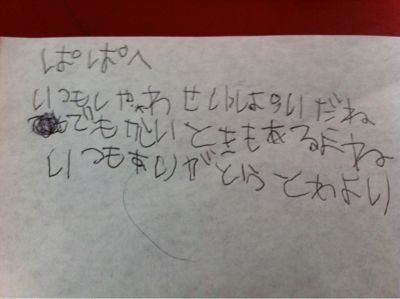 ぱぱへ
いつもしやわせいっぱいだね
でもかいときもあるよね
いつもありがとう とわより